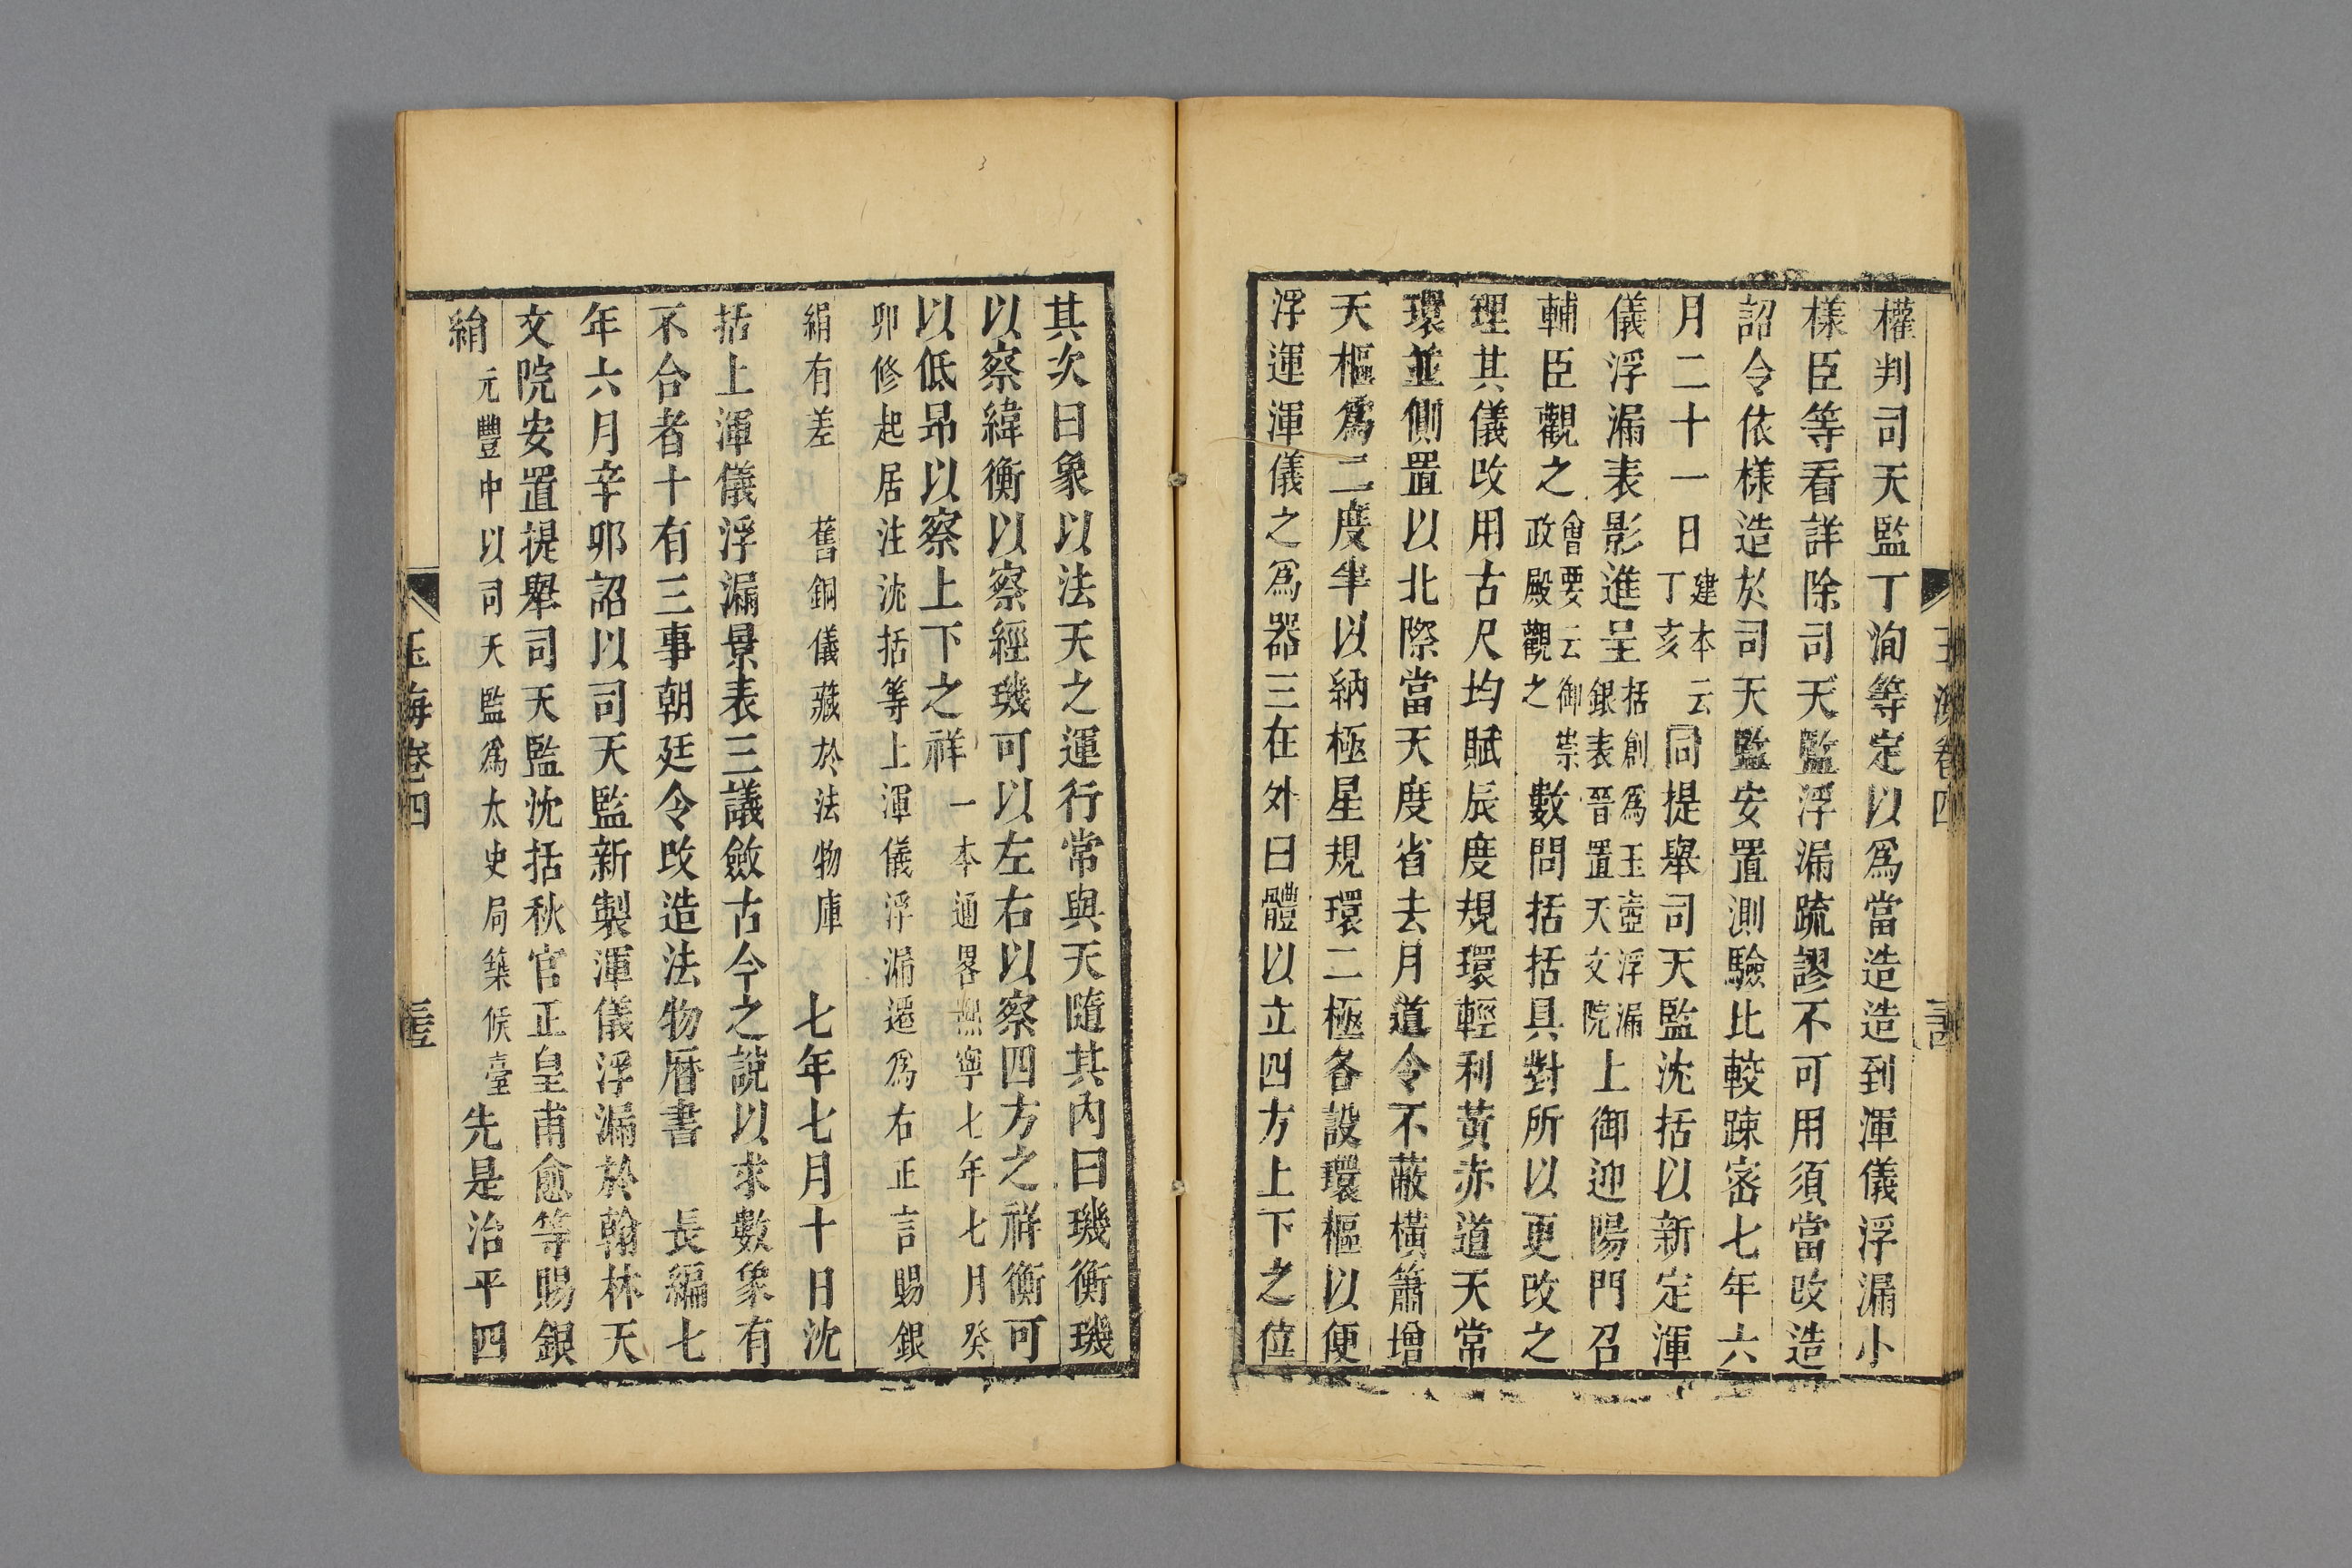 權判司天監丁洵等定以爲當造造到渾儀浮漏小
樣臣等看詳除司天監浮漏疏謬不可用須當改造
詔令依樣造於司天監安置測驗比較踈密七年六
月二十一日建本云丁亥同提舉司天監沈括以新定渾
儀浮漏表影進呈括創爲玉壺浮漏銀表晉置天文院上御迎陽門召
輔臣觀之會要云御崇政殿觀之數問括括具對所以更改之
理其儀改用古尺均賦辰度規環輕利黃赤道天常
環並側置以北際當天度省去月道令不蔽橫簫增
天樞爲二度半以納極星規環二極各設環樞以便
浮運渾儀之爲器三在外曰體以立四方上下之位
其次曰象以法天之運行常與天隨其內曰璣衡璣
以察緯衡以察經璣可以左右以察四方之祥衡可
以低昂以察上下之祥一本通畧熙寧七年七月癸
卯修起居注沈括等上渾儀浮漏遷爲右正言賜銀
絹有差 舊銅儀藏於法物庫 七年七月十日沈
括上渾儀浮漏景表三議斂古今之說以求數象有
不合者十有三事朝廷令改造法物曆書 長編七
年六月辛卯詔以司天監新製渾儀浮漏於翰林天
文院安置提舉司天監沈括秋官正皇甫愈等賜銀
絹元豐中以司天監爲太史局築候臺先是治平四
玉海卷四